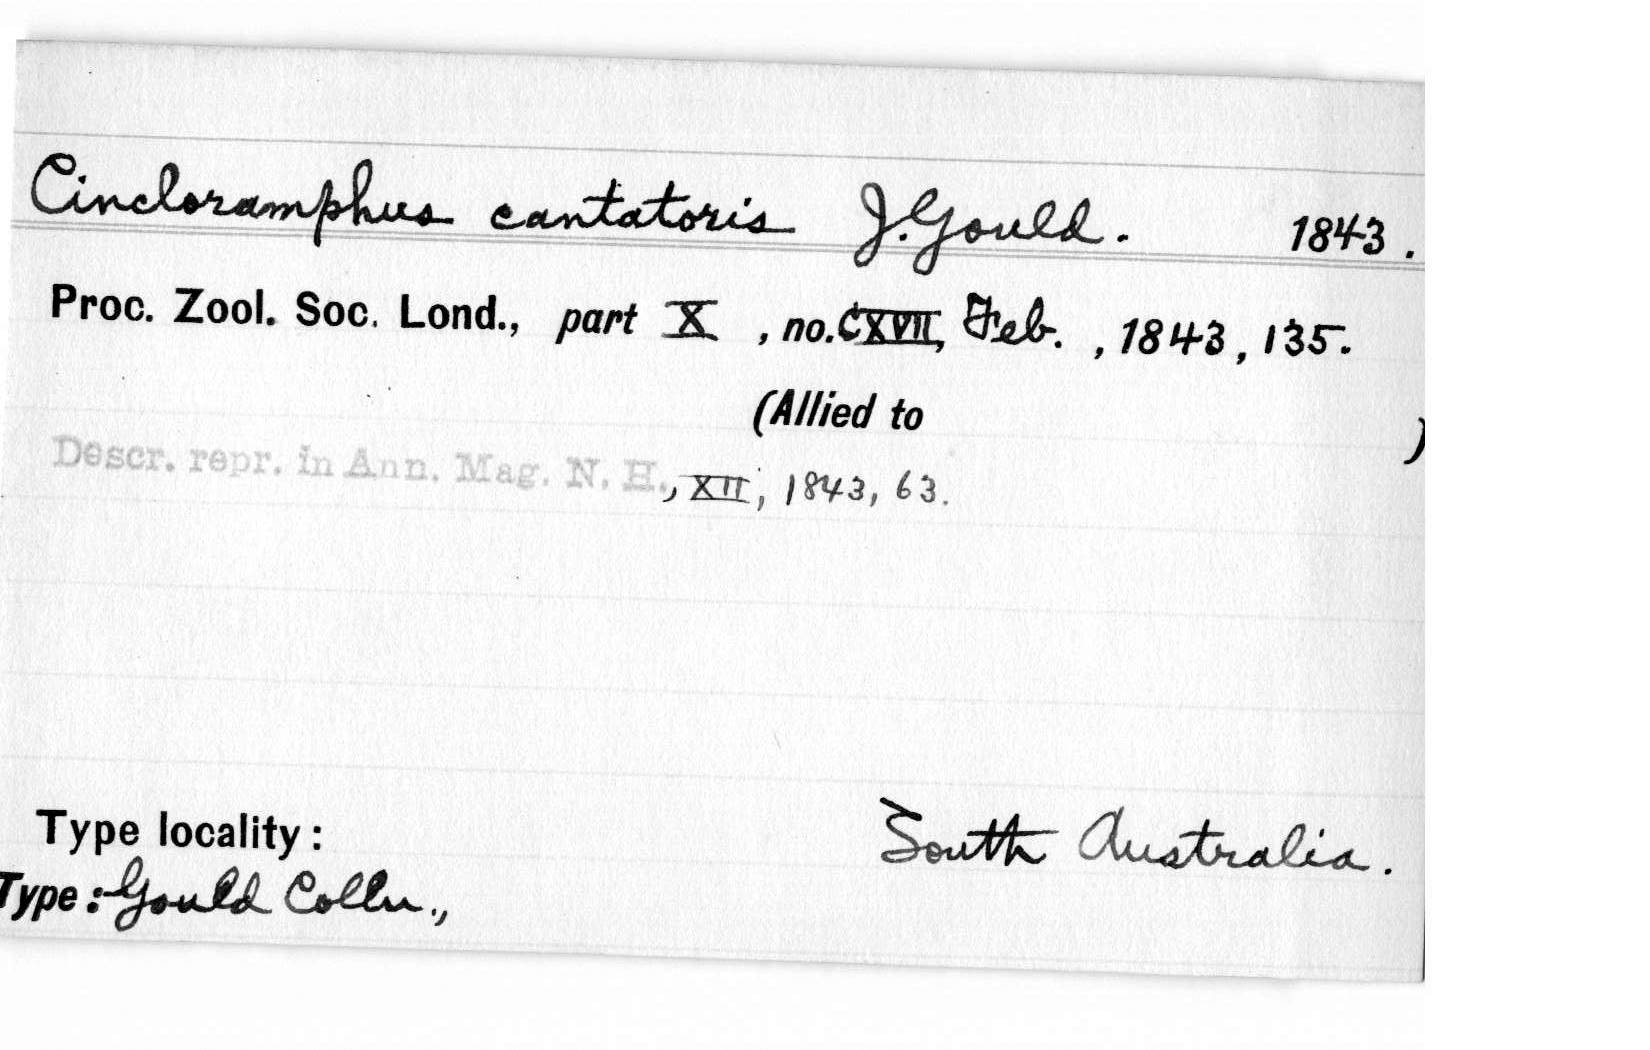 Cincloramphus cantatoris J. Gould. 1843.
Proc. Zool. Soc. Lond., part X, no. CXVII, Feb., 1843, 135.
(Allied to )
Descr. repr. in Ann. Mag. N. H., XII, 1843, 63.
Type locality: South Australia.
Type: Gould Colln.,